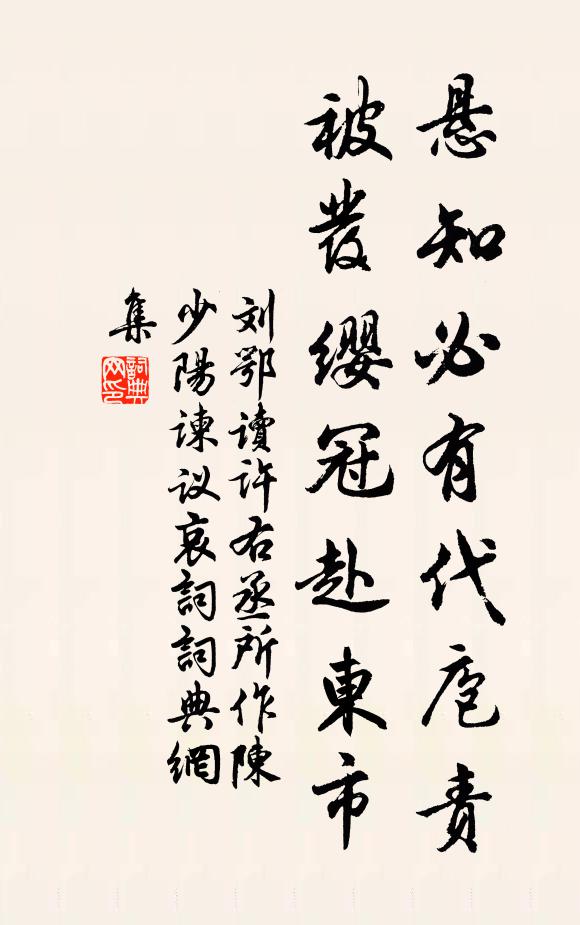 悬知必有代庖责
被发缨冠赴東市
刘鄂讀许右丞所作陳
少陽谏议哀詞詞典網
集
詞典
网印